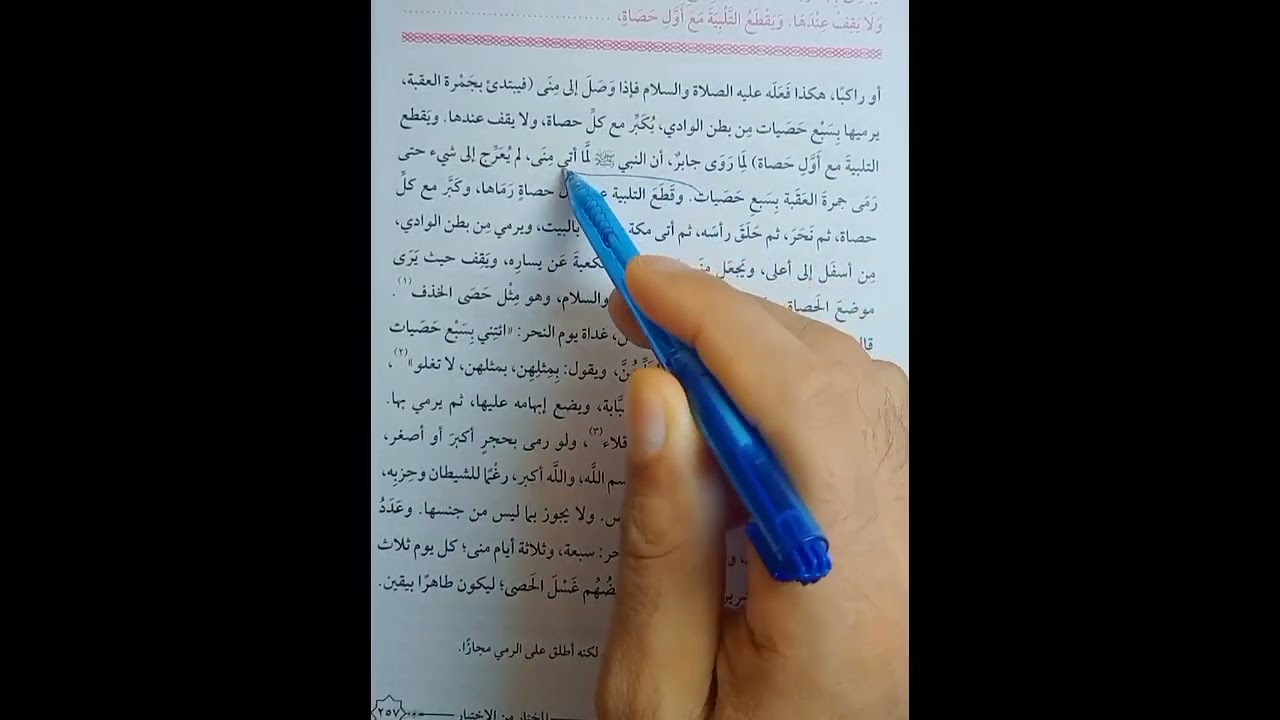 وَلَا يَقِفُ عِنْدَهَا. وَيَقْطَعُ التَّلْبِيَةَ مَعَ أَوَّلِ حَصَاةٍ،
أو راكبًا، هكذا فَعَلَه عليه الصلاة والسلام فإذا وَصَلَ إلى مِنَى (فيبتدئ بجَمْرة العقبة،
يرميها بِسَبْع حَصَيات مِن بطن الوادي، يُكَبِّر مع كلِّ حصاة، ولا يقف عندها. ويَقطع
التلبيةَ مع أَوَّلِ حَصاة) لِمَا رَوَى جابرٌ، أن النبي ﷺ لَمَّا أتى مِنَى، لم يُعَرِّج إلى شيء حتى
رَمَى جمرةَ العَقَبة بِسَبع حَصَيات. وقَطَعَ التلبية حصاةٍ رَمَاها، وكَبَّر مع كلِّ
حصاة، ثم نَحَرَ، ثم حَلَقَ رأسَه، ثم أتى مكة بالبيت، ويرمي مِن بطن الوادي،
مِن أسفَل إلى أعلى، ويَجعَل كعبةَ عَن يساره، ويَقِف حيث يَرَى
موضعَ الحَصاة والسلام، وهو مِثْل حَصَى الخذف(١).
غداة يوم النحر: «ائتِني بِسَبْع حَصَيات
ويقول: بِمِثلِهِن، بمثلهن، لا تغلو»(٢)،
ويضع إبهامه عليها، ثم يرمي بها.
ولو رمى بحجرٍ أكبرَ أو أصغر،
اللَّه، واللَّه أكبر، رغْمًا للشيطان وحِزبِه،
ولا يجوز بما ليس من جنسها. وعَدَدُ
سبعة، وثلاثة أيام منى؛ كل يوم ثلاث
غَسْلَ الحَصى؛ ليكون طاهرًا بيقين.
لكنه أطلق على الرمي مجازًا.
٢٥٧ المختار من الاختيار